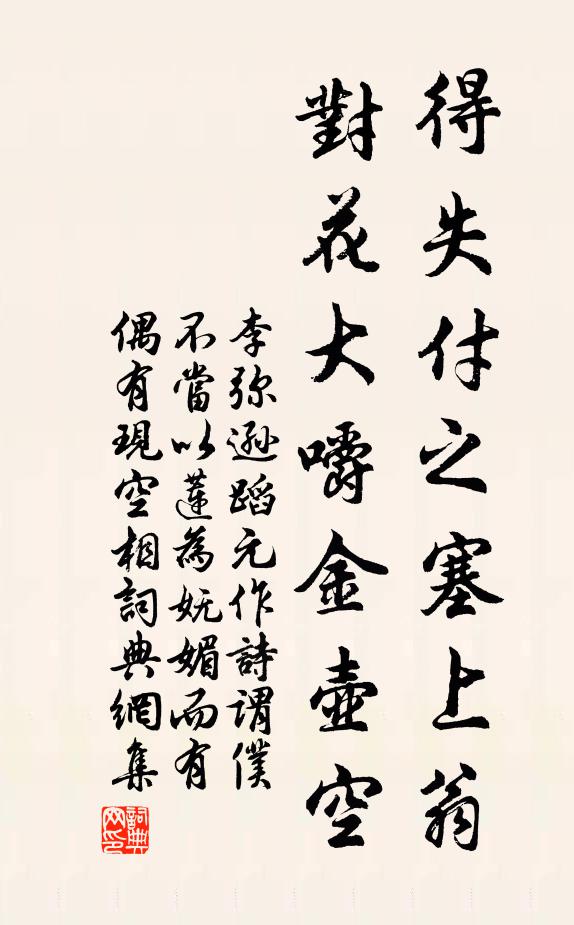 得失付之塞上翁
對花大嚼金壺空
李弥遜蹈元作詩謂僕
不當以蓮為妩媚而有
偶有現空相詞典網集
詞典网印